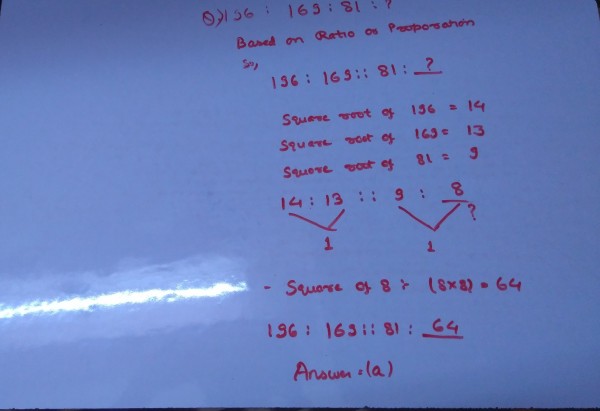 Q) 196 : 169 : 81 : ?
Based on Ratio or Proporation
So,
196 : 169 :: 81 : ?
Square root of 196 = 14
Square root of 169 = 13
Square root of 81 = 9
14 : 13 :: 9 : 8
?
1 1
- Square of 8 :- (8×8) = 64
196 : 169 :: 81 : 64
Answer = (a)